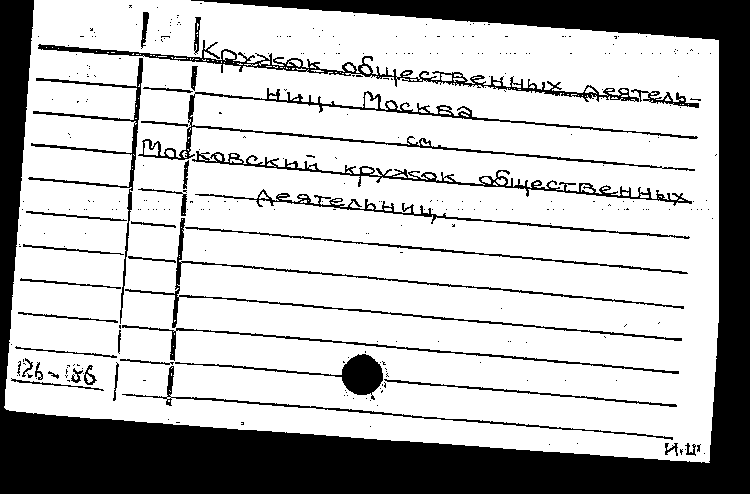 Кружок общественных деятель-
ниц. Москва
см.
Московский кружок общественных
деятельниц.
126-186
И.Ш